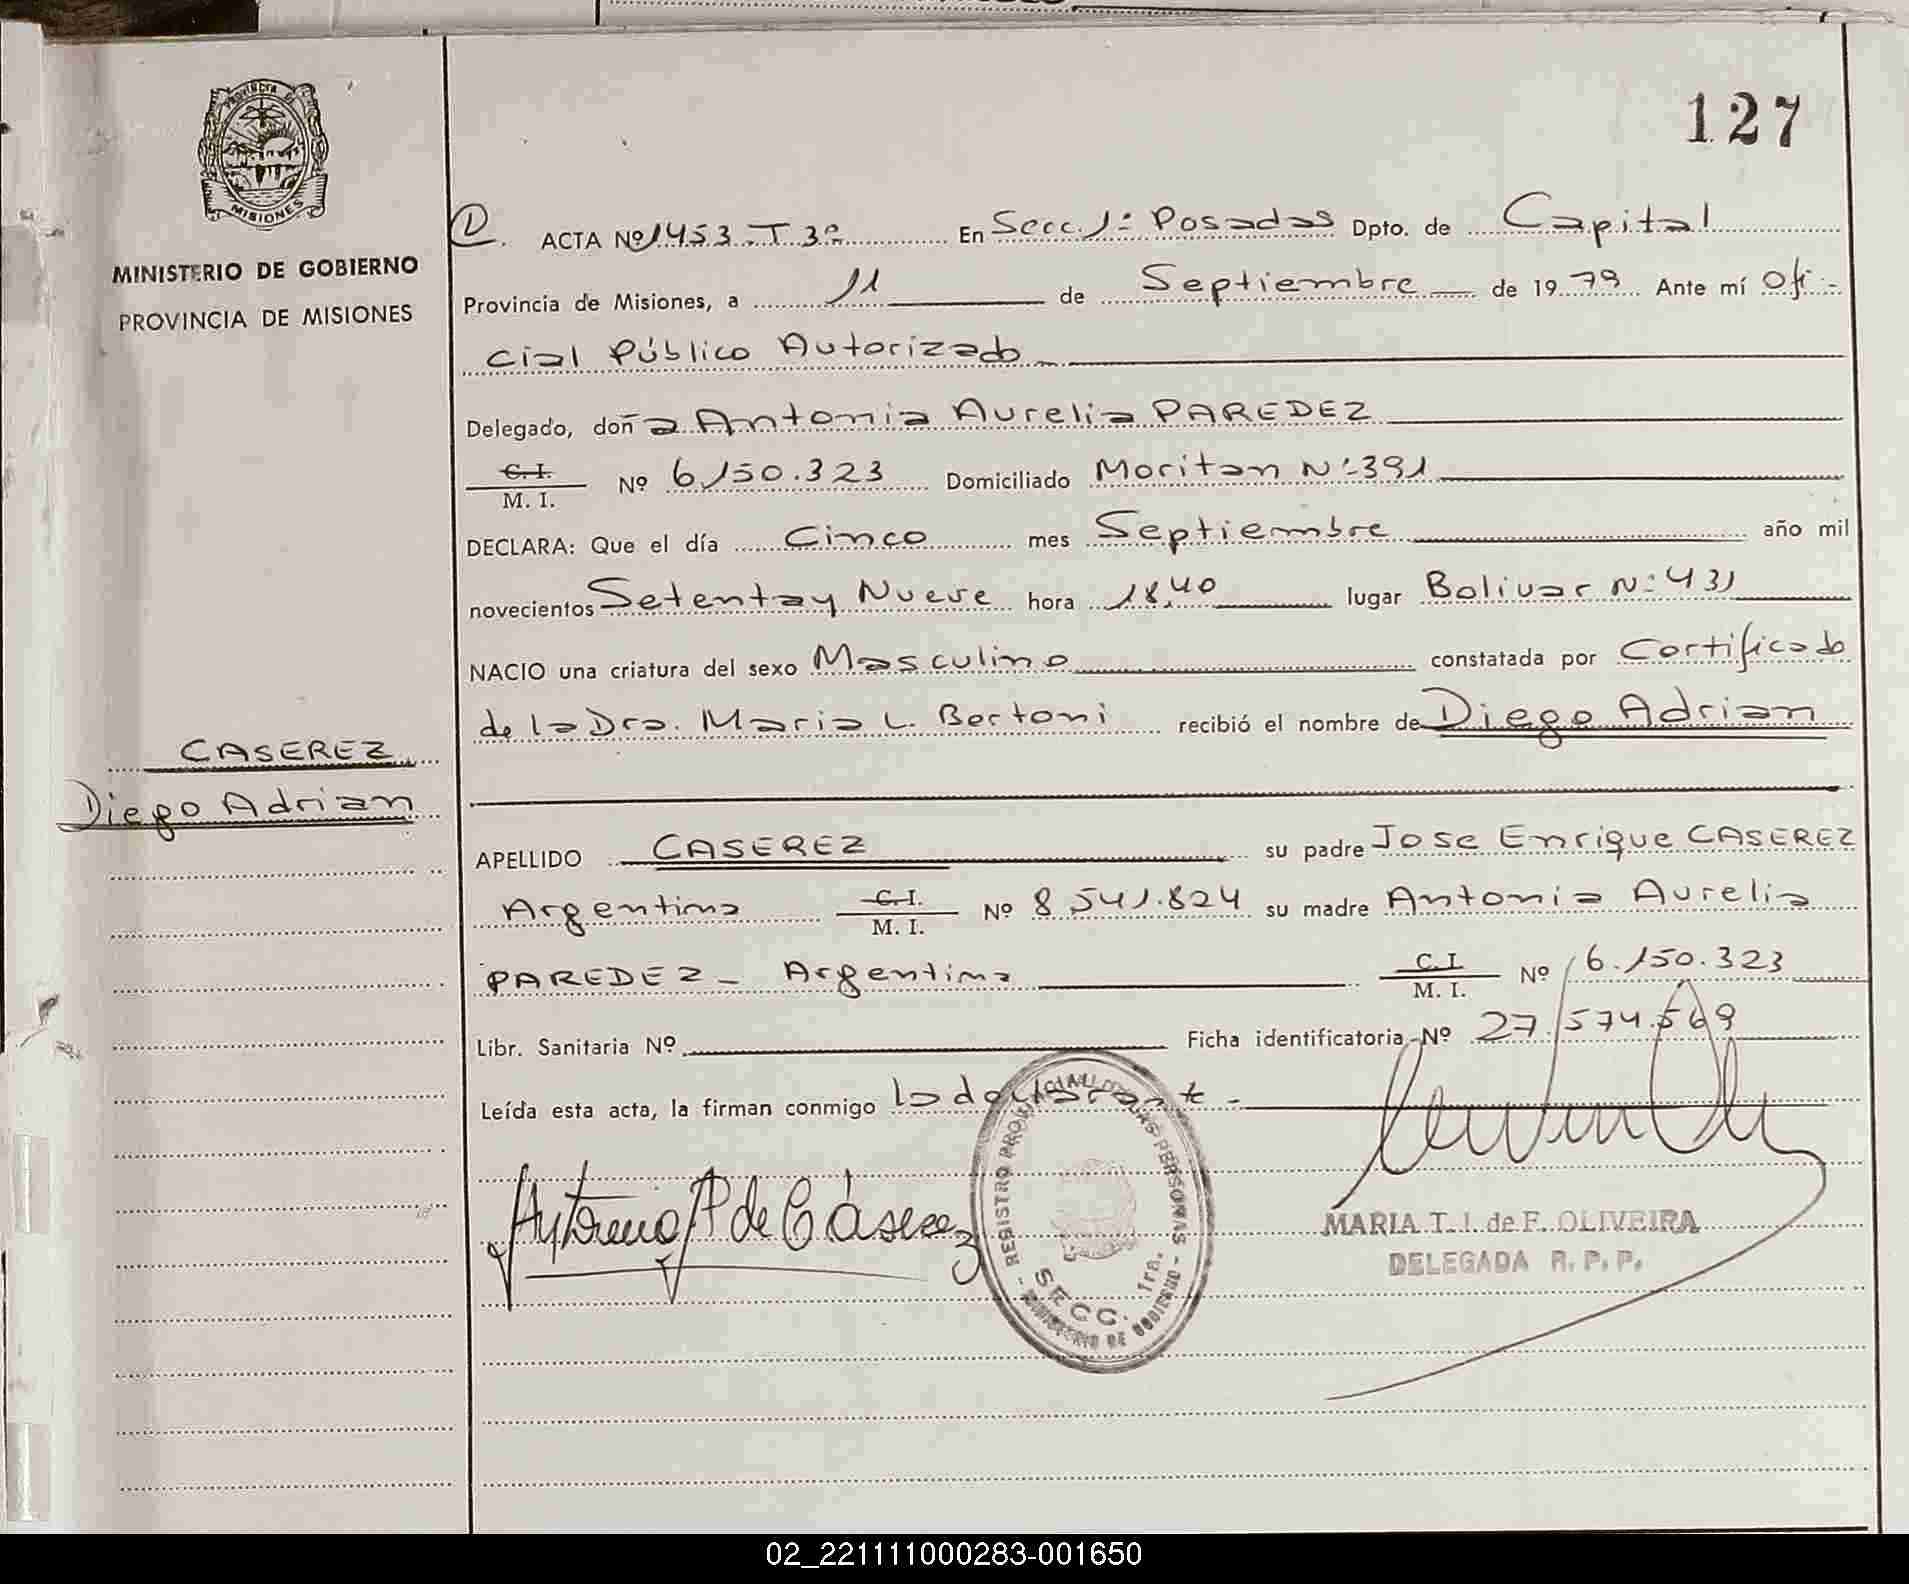 127
PROVINCIA DE
MISIONES
MINISTERIO DE GOBIERNO
PROVINCIA DE MISIONES
D. ACTA Nº 1453.T 3º En Secc. 1ª Posadas Dpto. de Capital
Provincia de Misiones, a 11 de Septiembre de 1979 Ante mí Ofi-
cial Público Autorizado
Delegado, doña Antonia Aurelia PAREDEZ
C. I.
M. I. Nº 6.150.323 Domiciliado Moritan Nº 391
DECLARA: Que el día Cinco mes Septiembre año mil
novecientos Setenta y Nueve hora 18,40 lugar Bolivar Nº 431
NACIO una criatura del sexo Masculino constatada por Certificado
de la Dra. Maria L. Bertoni recibió el nombre de Diego Adrian
CASEREZ
Diego Adrian
APELLIDO CASEREZ su padre Jose Enrique CASEREZ
Argentina C. I.
M. I. Nº 8.541.824 su madre Antonia Aurelia
PAREDEZ - Argentina C. I.
M. I. Nº 6.150.323
Libr. Sanitaria Nº Ficha identificatoria Nº 27.574.569
Leída esta acta, la firman conmigo la declarante -
Antonia P de Cáserez
REGISTRO PROVINCIAL DE LAS PERSONAS
SECC. 1ra.
MINISTERIO DE GOBIERNO
MARIA T. I. de F. OLIVEIRA
DELEGADA R. P. P.
02_221111000283-001650